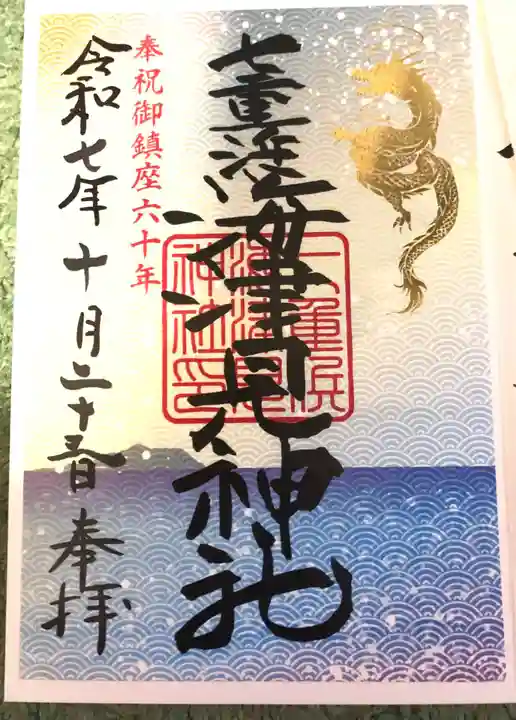 七重浜海津見神社
七重浜海津見神社印
奉祝御鎮座六十年
令和七年十月二十五日奉拝